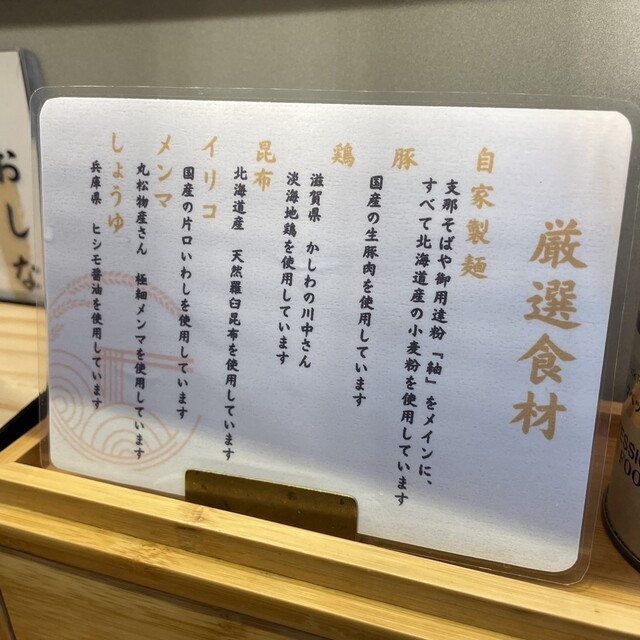 厳選食材
自家製麺
支那そばや御用達粉「紬」をメインに、
すべて北海道産の小麦粉を使用しています
豚
国産の生豚肉を使用しています
鶏
滋賀県 かしわの川中さん
淡海地鶏を使用しています
昆布
北海道産 天然羅臼昆布を使用しています
イリコ
国産の片口いわしを使用しています
メンマ
丸松物産さん 極細メンマを使用しています
しょうゆ
兵庫県 ヒシモ醤油を使用しています
おしな